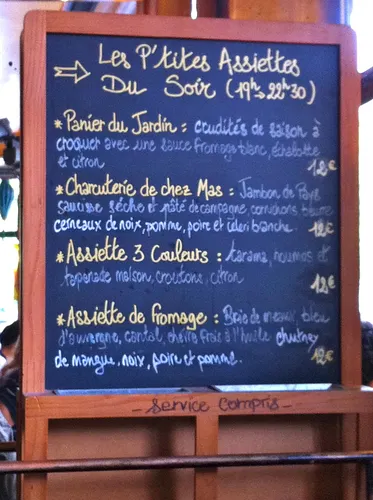 Les P'tites Assiettes
Du Soir (19h→22h30)
* Panier du Jardin : crudités de saison à
croquer avec une sauce fromage blanc, échallotte
et citron
12€
* Charcuterie de chez Mas : Jambon de Pays
saucisse séche et pâté de campagne, cornichons, beurre
cerneaux de noix, pomme, poire et céleri branche. 12€
* Assiette 3 Couleurs : tarama, houmos et
tapenade maison, croutons, citron
12€
* Assiette de fromage : Brie de meaux, bleu
d'auvergne, cantal, chèvre frais à l'huile chutney
de mangue, noix, poire et pomme. 12€
- Service Compris -